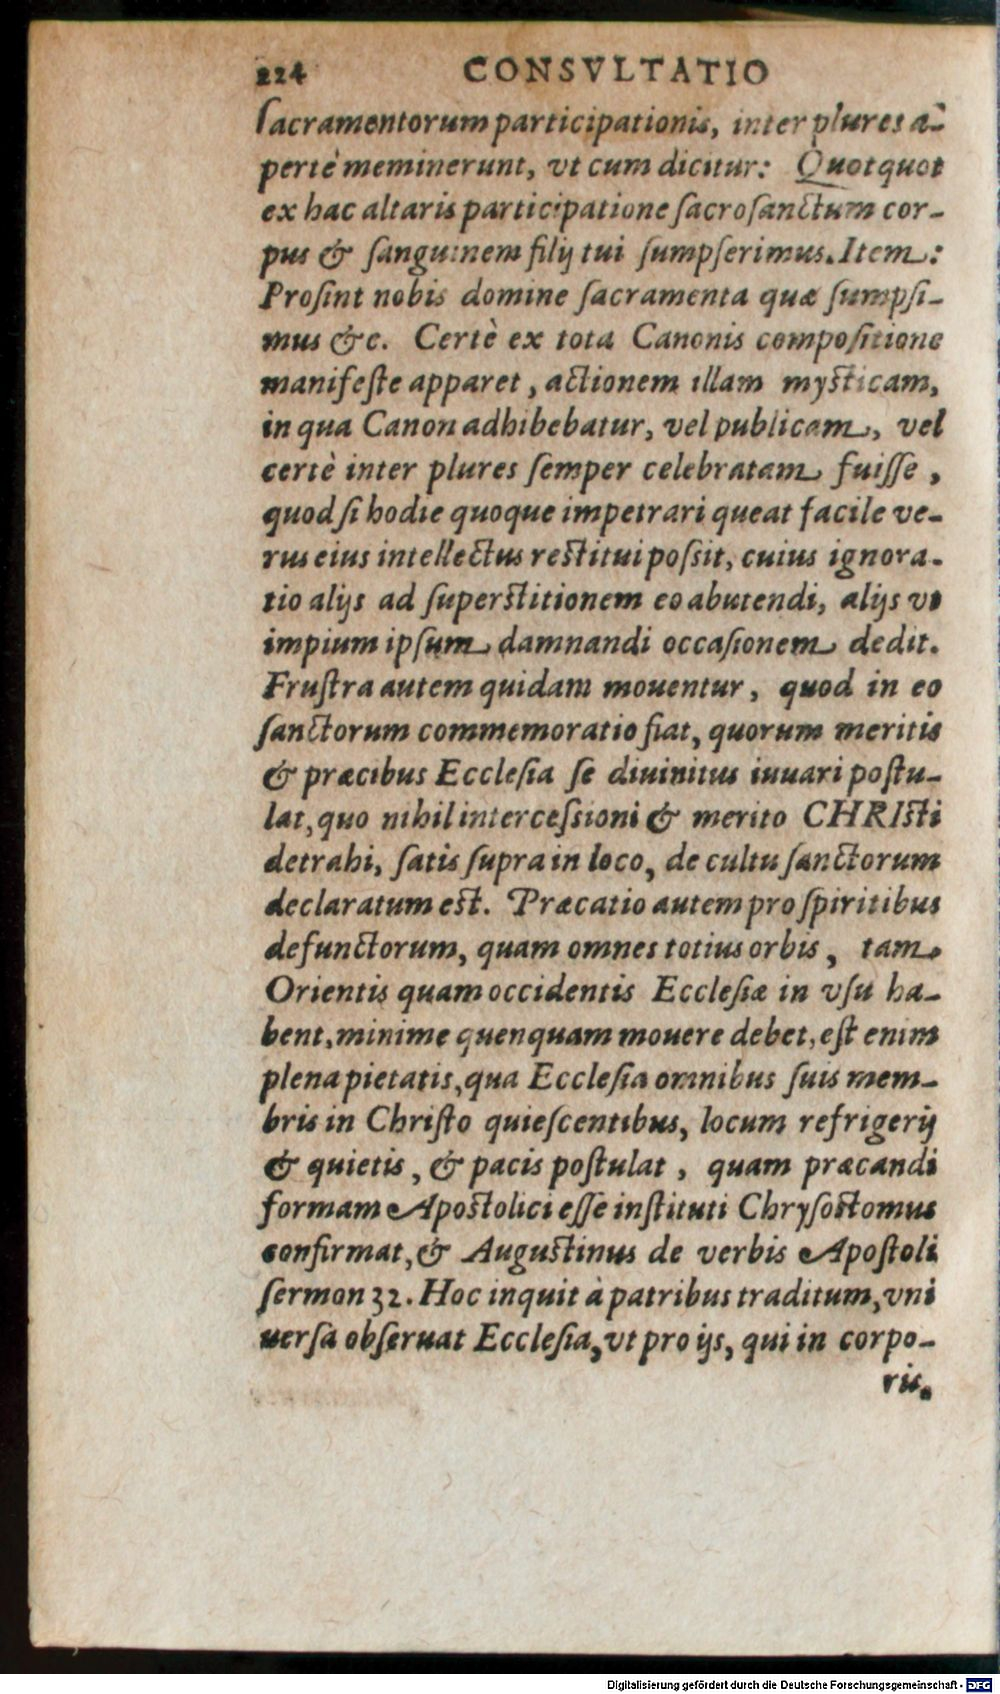 224 CONSVLTATIO
ſacramentorum participationis, inter plures a-
pertè meminerunt, vt cum dicitur: Quotquot
ex hac altaris participatione ſacroſanctum cor-
pus & ſanguinem filij tui ſumpſerimus. Item:
Proſint nobis domine ſacramenta quæ ſumpſi-
mus &c. Certè ex tota Canonis compoſitione
manifeſte apparet, actionem illam myſticam,
in qua Canon adhibebatur, vel publicam, vel
certè inter plures ſemper celebratam fuiſſe,
quod ſi hodie quoque impetrari queat facile ve-
rus eius intellectus reſtitui poſsit, cuius ignora-
tio alijs ad ſuperſtitionem eo abutendi, alijs vt
impium ipſum damnandi occaſionem dedit.
Fruſtra autem quidam mouentur, quod in eo
ſanctorum commemoratio fiat, quorum meritis
& præcibus Eccleſia ſe diuinitus iuuari poſtu-
lat, quo nihil interceſsioni & merito CHRISti
detrahi, ſatis ſupra in loco, de cultu ſanctorum
declaratum eſt. Præcatio autem pro ſpiritibus
defunctorum, quam omnes totius orbis, tam
Orientis quam occidentis Eccleſiæ in vſu ha-
bent, minime quenquam mouere debet, eſt enim
plena pietatis, qua Eccleſia omnibus ſuis mem-
bris in Chriſto quieſcentibus, locum refrigerij
& quietis, & pacis poſtulat, quam præcandi
formam Apoſtolici eſſe inſtituti Chryſoſtomus
confirmat, & Auguſtinus de verbis Apoſtoli
ſermon 32. Hoc inquit à patribus traditum, vni
uerſa obſeruat Eccleſia, vt pro ijs, qui in corpo-
ris.
Digitalisierung gefördert durch die Deutsche Forschungsgemeinschaft - DFG